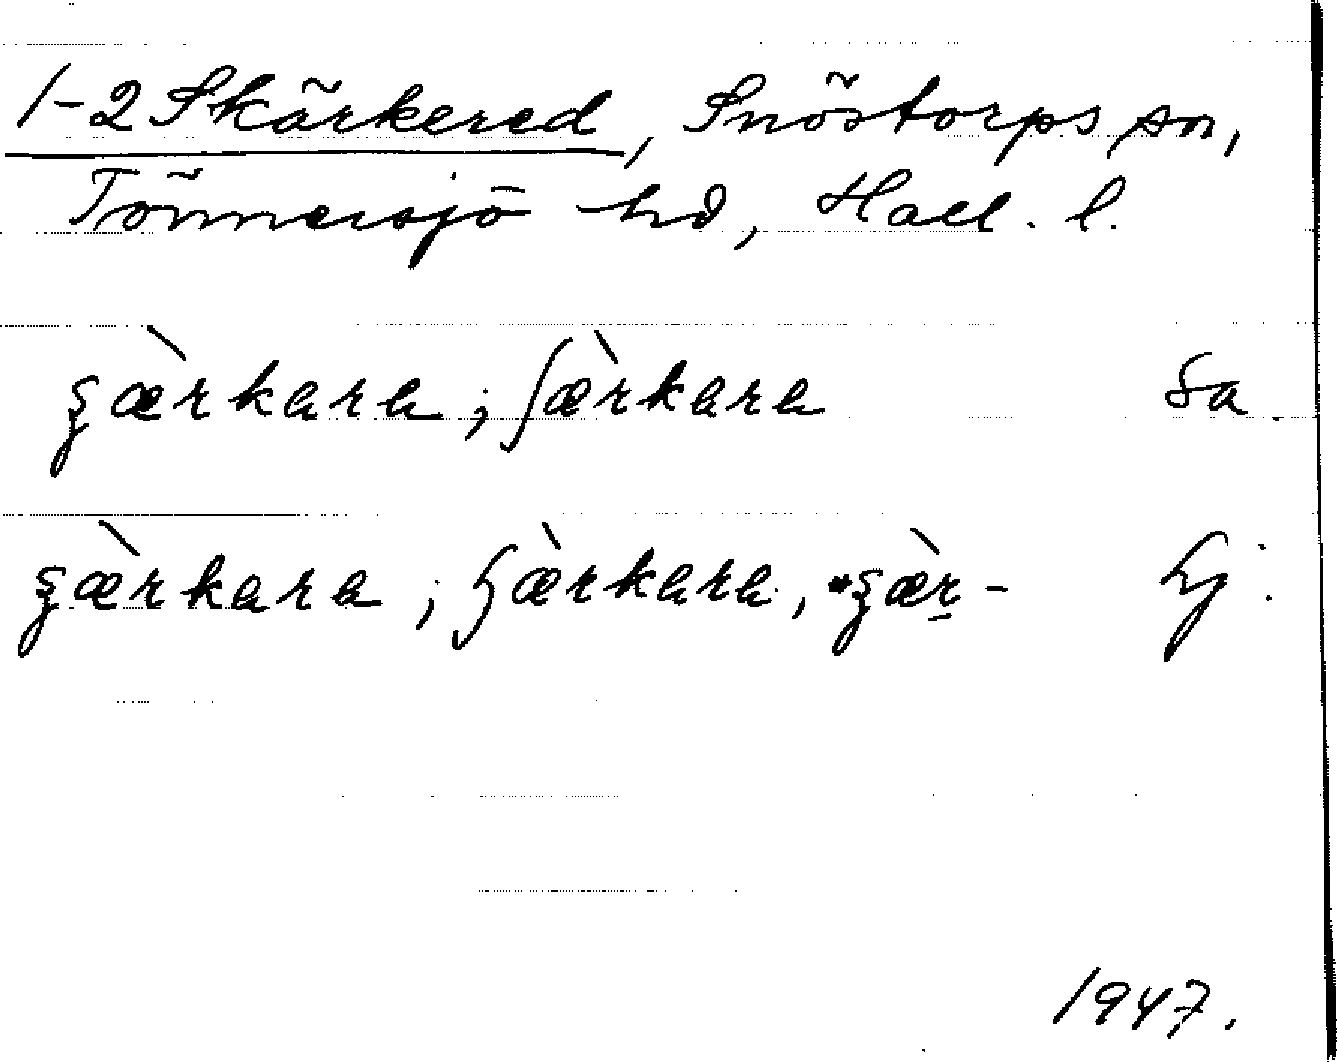 1-2 Skärkered, Snöstorps sn,
Tönnersjö hd, Hall. l.
ʂæ̀rkara; ʃæ̀rkara Sa.
ʂæ̀rkara; ɧæ̀rkara, *ʂær̠- Hj.
1947.